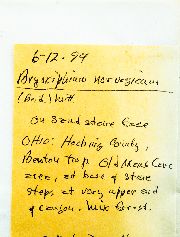 6-12.94
Bryoxiphium norvegicum
(Brid.) Mitt.
On Sandstone Face
Ohio: Hocking County,
Benton Twp Old Mans Cave
area, at base of stone
steps at very upper end
of canyon.